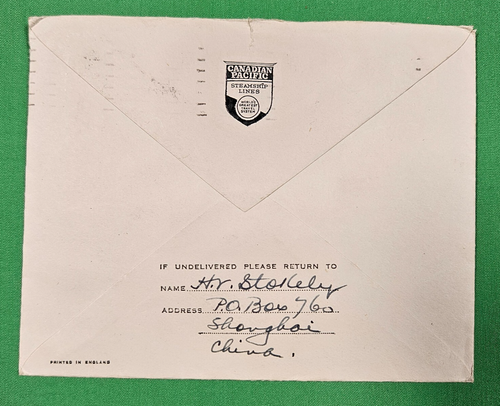 CANADIAN
PACIFIC
STEAMSHIP
LINES
WORLD'S
GREATEST
TRAVEL
SYSTEM
IF UNDELIVERED PLEASE RETURN TO
NAME H.V. Stokely
ADDRESS P.O. Box 760
Shanghai
China.
PRINTED IN ENGLAND